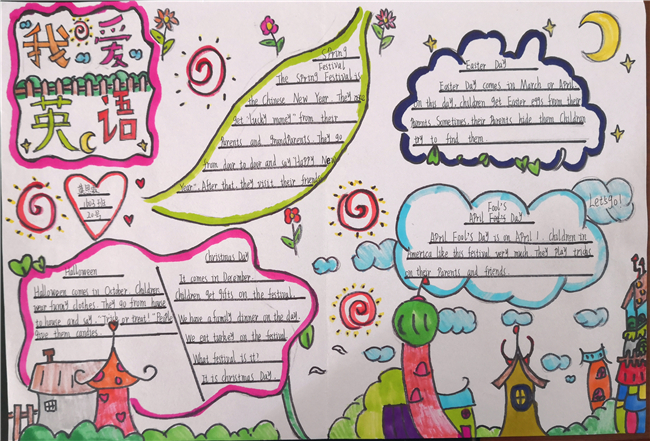 我爱
英语
Spring
Festival
The Spring Festival is
the Chinese New Year They
get "lucky money" from their
Parents and grandParents They go
from door to door and say Happy New
Year". After that, they visit their friends
Easter Day
Easter Day comes in March or April
on this day, children get Easter eggs from their
Parents Sometimes, their Parents hide them Children
try to find them
Fool's
April Fool's Day
April Fool's Day is on April 1. Children in
America like this festival very much. They Play tricks
on their Parents and friends.
Let's go!
Halloween
Halloween comes in October Children
wear funny clothes. They go from house
to house and say, "Trick or treat!" People
give them candies.
Christmas Day
It comes in December.
Children get gifts on the festival.
We have a family dinner on the day.
We eat turkey on the festival
What festival is it?
It is christmas Day